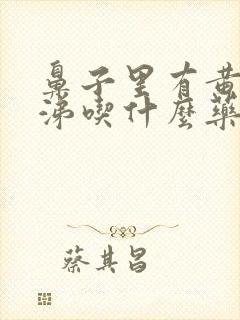 鼻子里有黄
涕喫什麼藥
蔡其昌